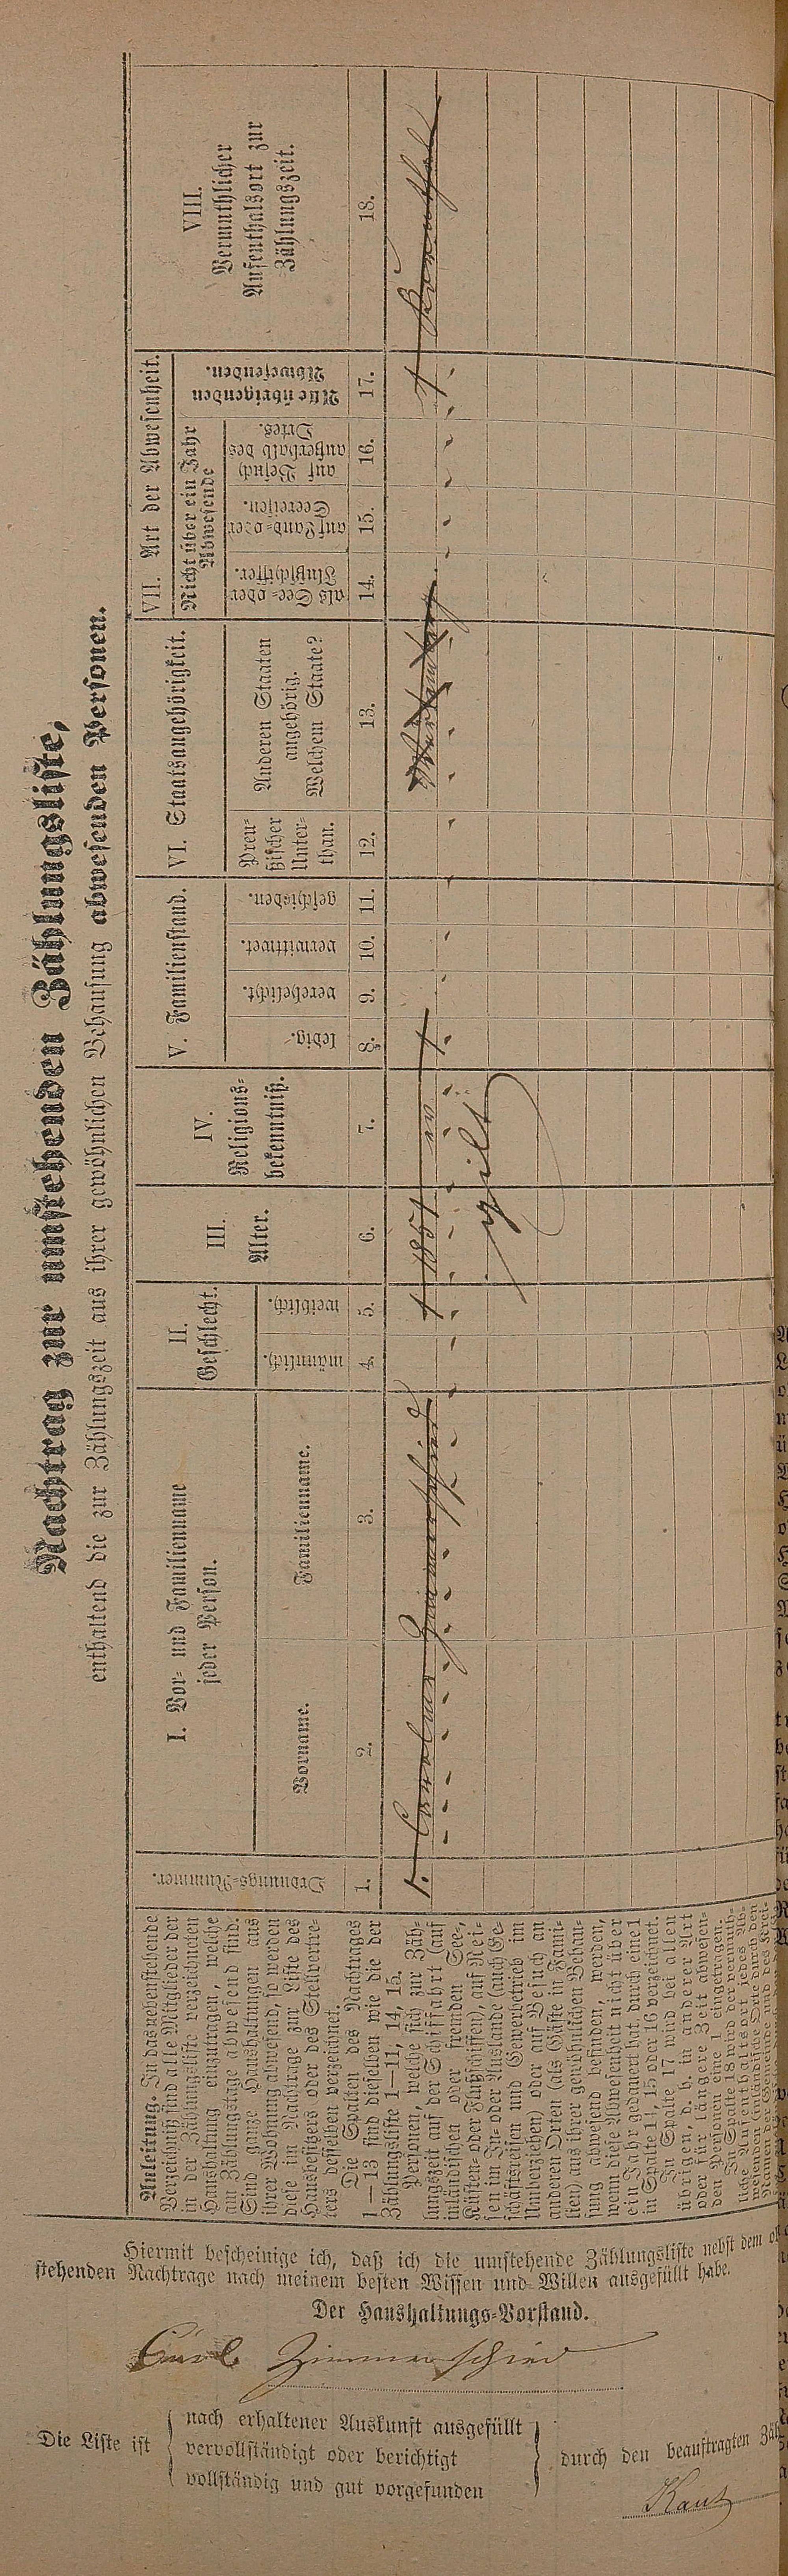 Nachtrag zur umstehenden Zählungsliste,
enthaltend die zur Zählungszeit aus ihrer gewöhnlichen Behausung abwesenden Personen.
Anleitung. In das nebenstehende
Verzeichniß sind alle Mitglieder der
in der Zählungsliste verzeichneten
Haushaltung einzutragen, welche
am Zählungstage abwesend sind.
Sind ganze Haushaltungen aus
ihrer Wohnung abwesend, so werden
diese im Nachtrage zur Liste des
Hausbesitzers oder des Stellvertre-
ters desselben verzeichnet.
Die Spalten des Nachtrages
1—13 sind dieselben wie die der
Zählungsliste 1—11, 14, 15.
Personen, welche sich zur Zäh-
lungszeit auf der Schifffahrt (auf
inländischen oder fremden See-,
Küsten- oder Flußschiffen), auf Rei-
sen im In- oder Auslande (auch Ge-
schäftsreisen und Gewerbetrieb im
Umherziehen) oder auf Besuch an
anderen Orten (als Gäste in Fami-
lien) aus ihrer gewöhnlichen Behau-
sung abwesend befinden, werden,
wenn diese Abwesenheit nicht über
ein Jahr gedauert hat, durch eine 1
in Spalte 14, 15 oder 16 verzeichnet.
In Spalte 17 wird bei allen
übrigen, d. h. in anderer Art
oder für längere Zeit abwesen-
den Personen eine 1 eingetragen.
In Spalte 18 wird der vermuth-
liche Aufenthaltsort jedes Ab-
wesenden (inländische Orte durch den
Namen der Gemeinde und des Krei-
Ordnungs-Nummer.
I. Vor- und Familienname
jeder Person.
Vorname.
Familienname.
II.
Geschlecht.
männlich.
weiblich.
III.
Alter.
IV.
Religions-
bekenntniß.
V. Familienstand.
ledig.
verehelicht.
verwittwet.
geschieden.
VI. Staatsangehörigkeit.
Preu-
ßischer
Unter-
than.
Anderen Staaten
angehörig.
Welchem Staate?
VII. Art der Abwesenheit.
Nicht über ein Jahr
Abwesende
als See- oder
Flußschiffer.
auf Land- oder
Seereisen.
auf Besuch
außerhalb des
Ortes.
Alle übrigen
Abwesenden.
VIII.
Vermuthlicher
Aufenthalsort zur
Zählungszeit.
1. 2. 3. 4. 5. 6. 7. 8. 9. 10. 11. 12. 13. 14. 15. 16. 17. 18.
1. Caroline Zimmerschied 1 1851 ev 1 1
gilt
Hiermit bescheinige ich, daß ich die umstehende Zählungsliste nebst dem
stehenden Nachtrage nach meinem besten Wissen und Willen ausgefüllt habe.
Der Haushaltungs-Vorstand.
Carl Zimmerschied
Die Liste ist
nach erhaltener Auskunft ausgefüllt
vervollständigt oder berichtigt
vollständig und gut vorgefunden
durch den beauftragten Zäh
Kautz